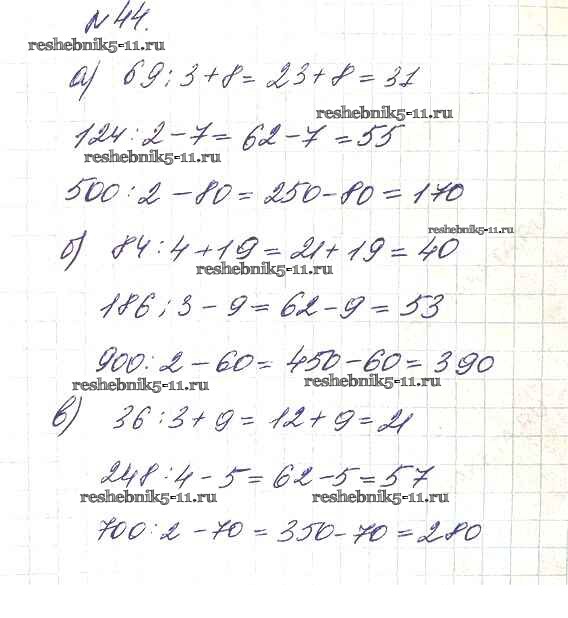 № 44.
reshebnik5-11.ru
а) 69 : 3 + 8 = 23 + 8 = 31
reshebnik5-11.ru
124 : 2 - 7 = 62 - 7 = 55
reshebnik5-11.ru
500 : 2 - 80 = 250 - 80 = 170
reshebnik5-11.ru
б) 84 : 4 + 19 = 21 + 19 = 40
reshebnik5-11.ru
186 : 3 - 9 = 62 - 9 = 53
900 : 2 - 60 = 450 - 60 = 390
reshebnik5-11.ru reshebnik5-11.ru
в) 36 : 3 + 9 = 12 + 9 = 21
248 : 4 - 5 = 62 - 5 = 57
reshebnik5-11.ru reshebnik5-11.ru
700 : 2 - 70 = 350 - 70 = 280